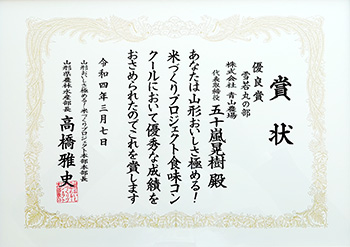 賞状
優良賞
雪若丸の部
株式会社 青山農場
代表取締役 五十嵐晃樹 殿
あなたは山形おいしさ極める!
米づくりプロジェクト食味コン
クールにおいて優秀な成績を
おさめられたのでこれを賞します
令和四年三月七日
山形おいしさ極める!米づくりプロジェクト本部本部長
山形県農林水産部長 高橋雅史